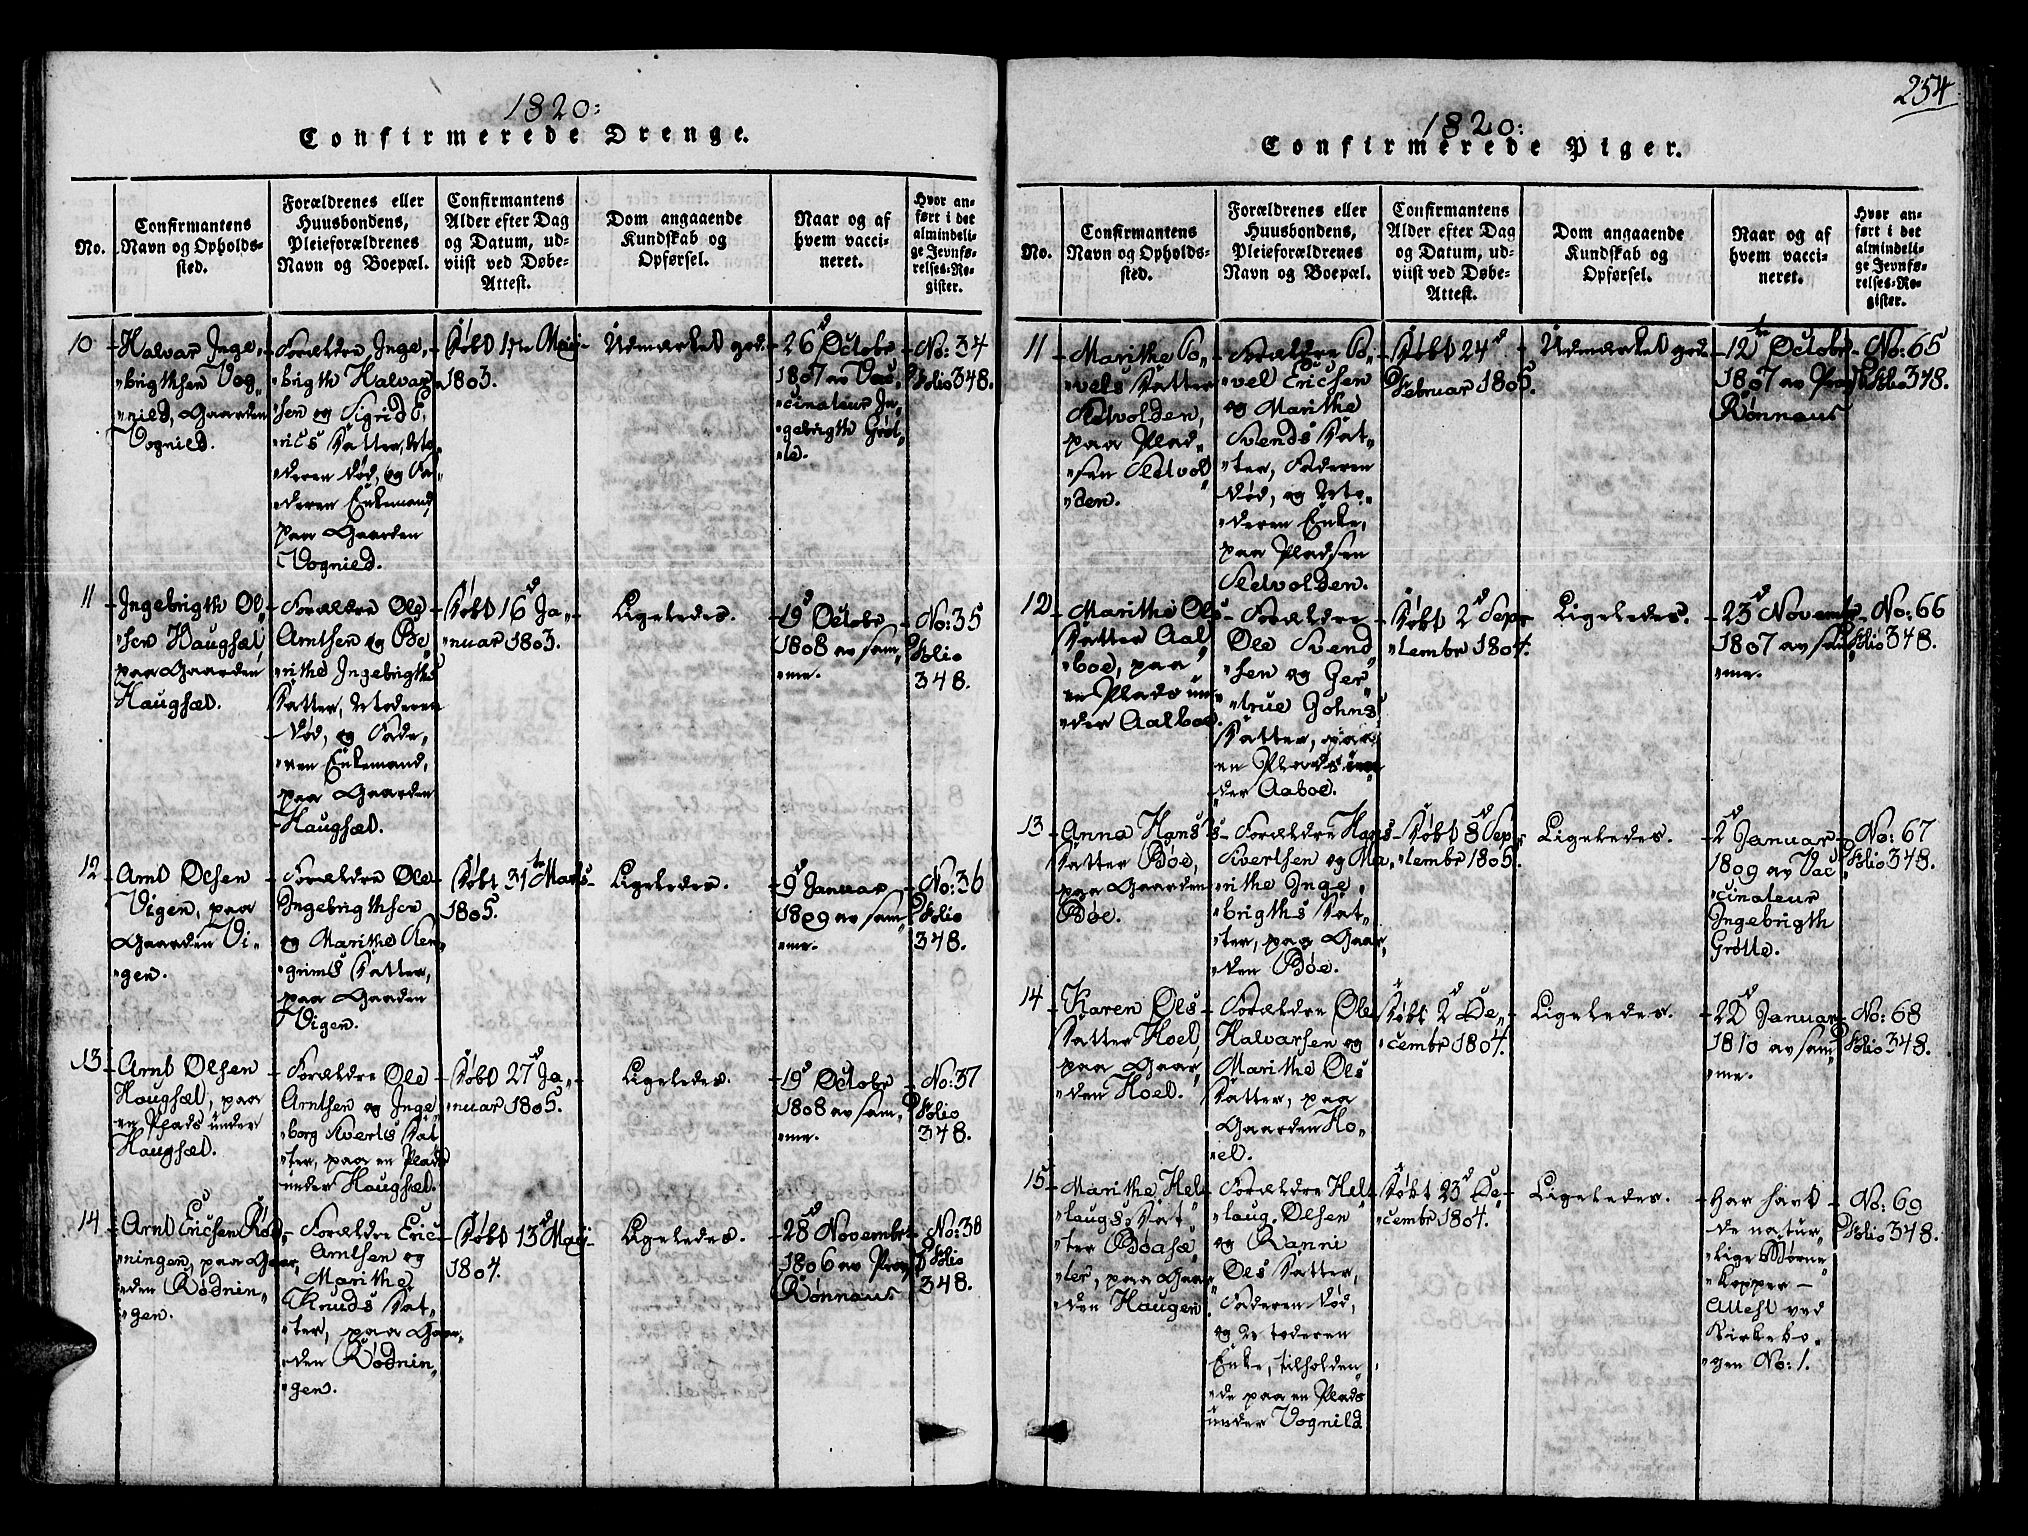 1820:
Confirmerede Drenge.
No.
Confirmantens
Navn og Opholds-
sted.
Forældrenes eller
Huusbondens,
Pleieforældrenes
Navn og Boepæl.
Confirmantens
Alder efter Dag
og Datum, ud-
viist ved Døbe-
Attest.
Dom angaaende
Kundskab og
Opførsel.
Naar og af
hvem vacci-
neret.
Hvor an-
ført i det
almindeli-
ge Jevnfø-
relses-Re-
gister.
10
Halvar Inge-
brigthsen Vog-
nild, Gaarden
Vognild.
Forældre Inge-
brigth Halvar-
sen og Sigrid E-
rics Datter, Mo-
deren død, og Fa-
deren Enkemand
paa Gaarden
Vognild.
Døbt 1te Maij
1803.
Udmærket god.
26d Octobr
1807 av Vac-
cinateur In-
gebrigth Grøt-
te.
No: 34
Folio 348.
11
Ingebrigth Ol-
sen Haugsæt,
paa Gaarden
Haugsæt.
Forældre Ole
Arntsen og Be-
rithe Ingebrigths
Datter, Moderen
død, og Fade-
ren Enkemand,
paa Gaarden
Haugsæt.
Døbt 16d Ja-
nuar 1803.
Ligeledes.
19d Octobr
1808 av sam-
me.
No: 35
Folio
348.
12
Arnt Olsen
Vigen, paa
Gaarden Vi-
gen.
Forældre Ole
Ingebrigthsen
og Marithe Sten-
grims Datter,
paa Gaaden
Vigen.
Døbt 31te Marts
1805.
Ligeledes.
9d Januar
1809 av sam-
me.
No: 36
Folio
348.
13
Arnt Olsen
Haugsæt, paa
en Plads under
Haugsæt.
Forældre Ole
Arntsen og Inge-
borg Sivertls Dat-
ter, paa en Plads
under Haugsæt.
Døbt 27d Ja-
nuar 1805.
Ligeledes.
19d Octobr
1808 av sam-
me.
No: 37
Folio
348.
14
Arnt Ericsen Rød-
ningen, paa Gaar-
den Rødnin-
gen.
Forældre Eric
Arntsen og
Marithe
Knuds Dat-
ter, paa Gaar-
den Rødnin-
gen.
Døbt 13d Maij
1804.
Ligeledes.
28d Novembr
1806 av Prov:
Rønnaus
No: 38
Folio
348.
254
1820:
Confirmerede Piger.
No.
Confirmantens
Navn og Opholds-
sted.
Forældrenes eller
Huusbondens,
Pleieforældrenes
Navn og Boepæl.
Confirmantens
Alder efter Dag
og Datum, ud-
viist ved Døbe-
Attest.
Dom angaaende
Kundskab og
Opførsel.
Naar og af
hvem vacci-
neret.
Hvor an-
ført i det
almindeli-
ge Jevnfø-
relses-Re-
gister.
11
Marithe Po-
vels Datter
Sletvolden,
paa Plad-
sen Sletvol-
den.
Forældre Po-
vel Ericsen
og Marithe
Svends Dat-
ter, Faderen
død, og Mo-
deren Enke,
paa Pladsen
Sletvolden.
Døbt 24d
Februar 1805.
Udmærket god.
12te Octobr
1807 av Prov:
Rønnaus
No: 65
Folio 348.
12
Marithe Ols
Datter Aal-
boe, paa
en Plads un-
der Aalboe.
Forældre
Ole Svend-
sen og Ger-
true Johns
Datter, paa
en Plads un-
der Aaboe.
Døbt 2d Sep-
tembr 1804.
Ligeledes.
23d Novembr
1807 av sam-
me.
No: 66
Folio 348.
13
Anna Hans
Datter Bøe,
paa Gaarden
Bøe.
Forældre Hans
Sivertsen og Ma-
rithe Inge-
brigths Dat-
ter, paa Gaar-
den Bøe.
Døbt 8d Sep-
tembr 1805.
Ligeledes.
2d Januar
1809 av Vac-
cinateur
Ingebrigth
Grøtte.
No: 67
Folio 348.
14
Karen Ols
Datter Hoel,
paa Gaar-
den Hoel.
Forældre Ole
Halvarsen og
Marithe Ols
Datter, paa
Gaarden Ho-
el.
Døbt 2d De-
cembr 1804.
Ligeledes.
22d Januar
1810 av sam-
me.
No: 68
Folio 348.
15
Marithe Hel-
laugs Dat-
ter Bøasæ-
ter, paa Gaar-
den Haugen
Forældre Hel-
laug Olsen
og Ranni
Ols Datter,
Faderen død,
og Moderen
Enke, tilholden-
de paa en Plads
under Vognild.
Døbt 23d De-
cembr 1804.
Ligeledes.
har havt
de natur-
lige Børne-
kopper –
Attest ved
Kirkebo-
gen No: 1.
No: 69
Folio 348.